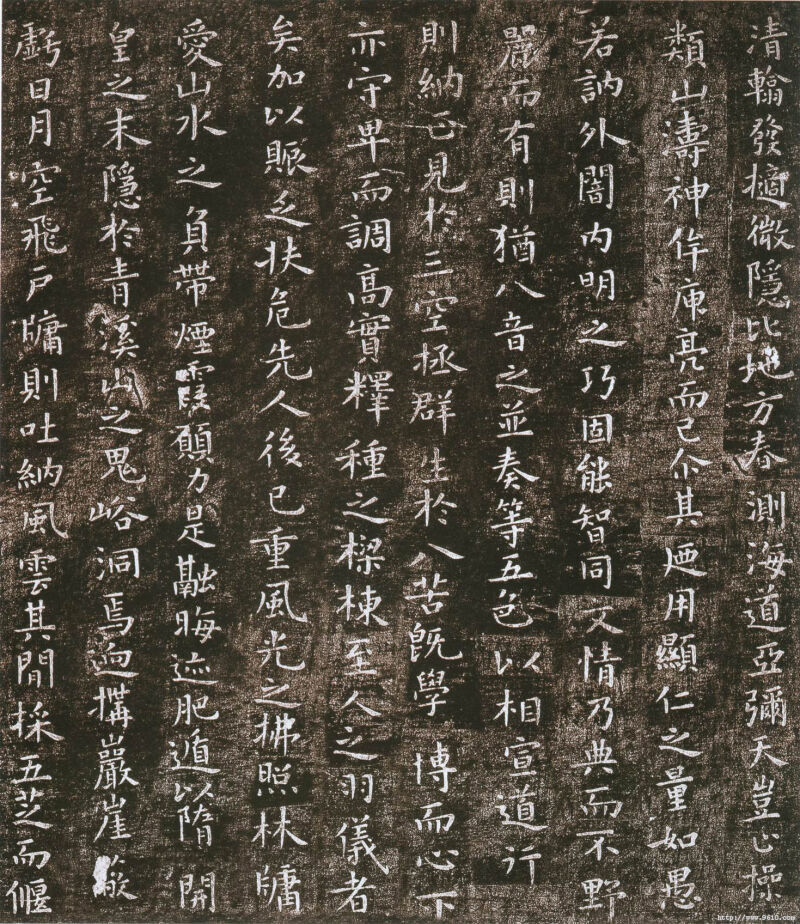 清翰發擿微隱比地方春測海道亞彌天豈止操
類山濤神侔庾亮而已尒其迺用顯仁之量如愚
若訥外闇內明之巧固能智同文情乃典而不野
麗而有則猶八音之並奏等五色以相宣道行
則納正見於三空拯群生於八苦旣學博而心下
亦守卑而調高實釋種之樑棟至人之羽儀者
矣加以賑乏扶危先人後已重風光之拂照林牖
愛山水之負帶煙霞願力是融晦迹肥遁以隋開
皇之末隱於青溪山之鬼峪洞焉迥搆巖崖蔽
虧日月空飛戶牖則吐納風雲其閒採五芝而偃
http://www.9610.com